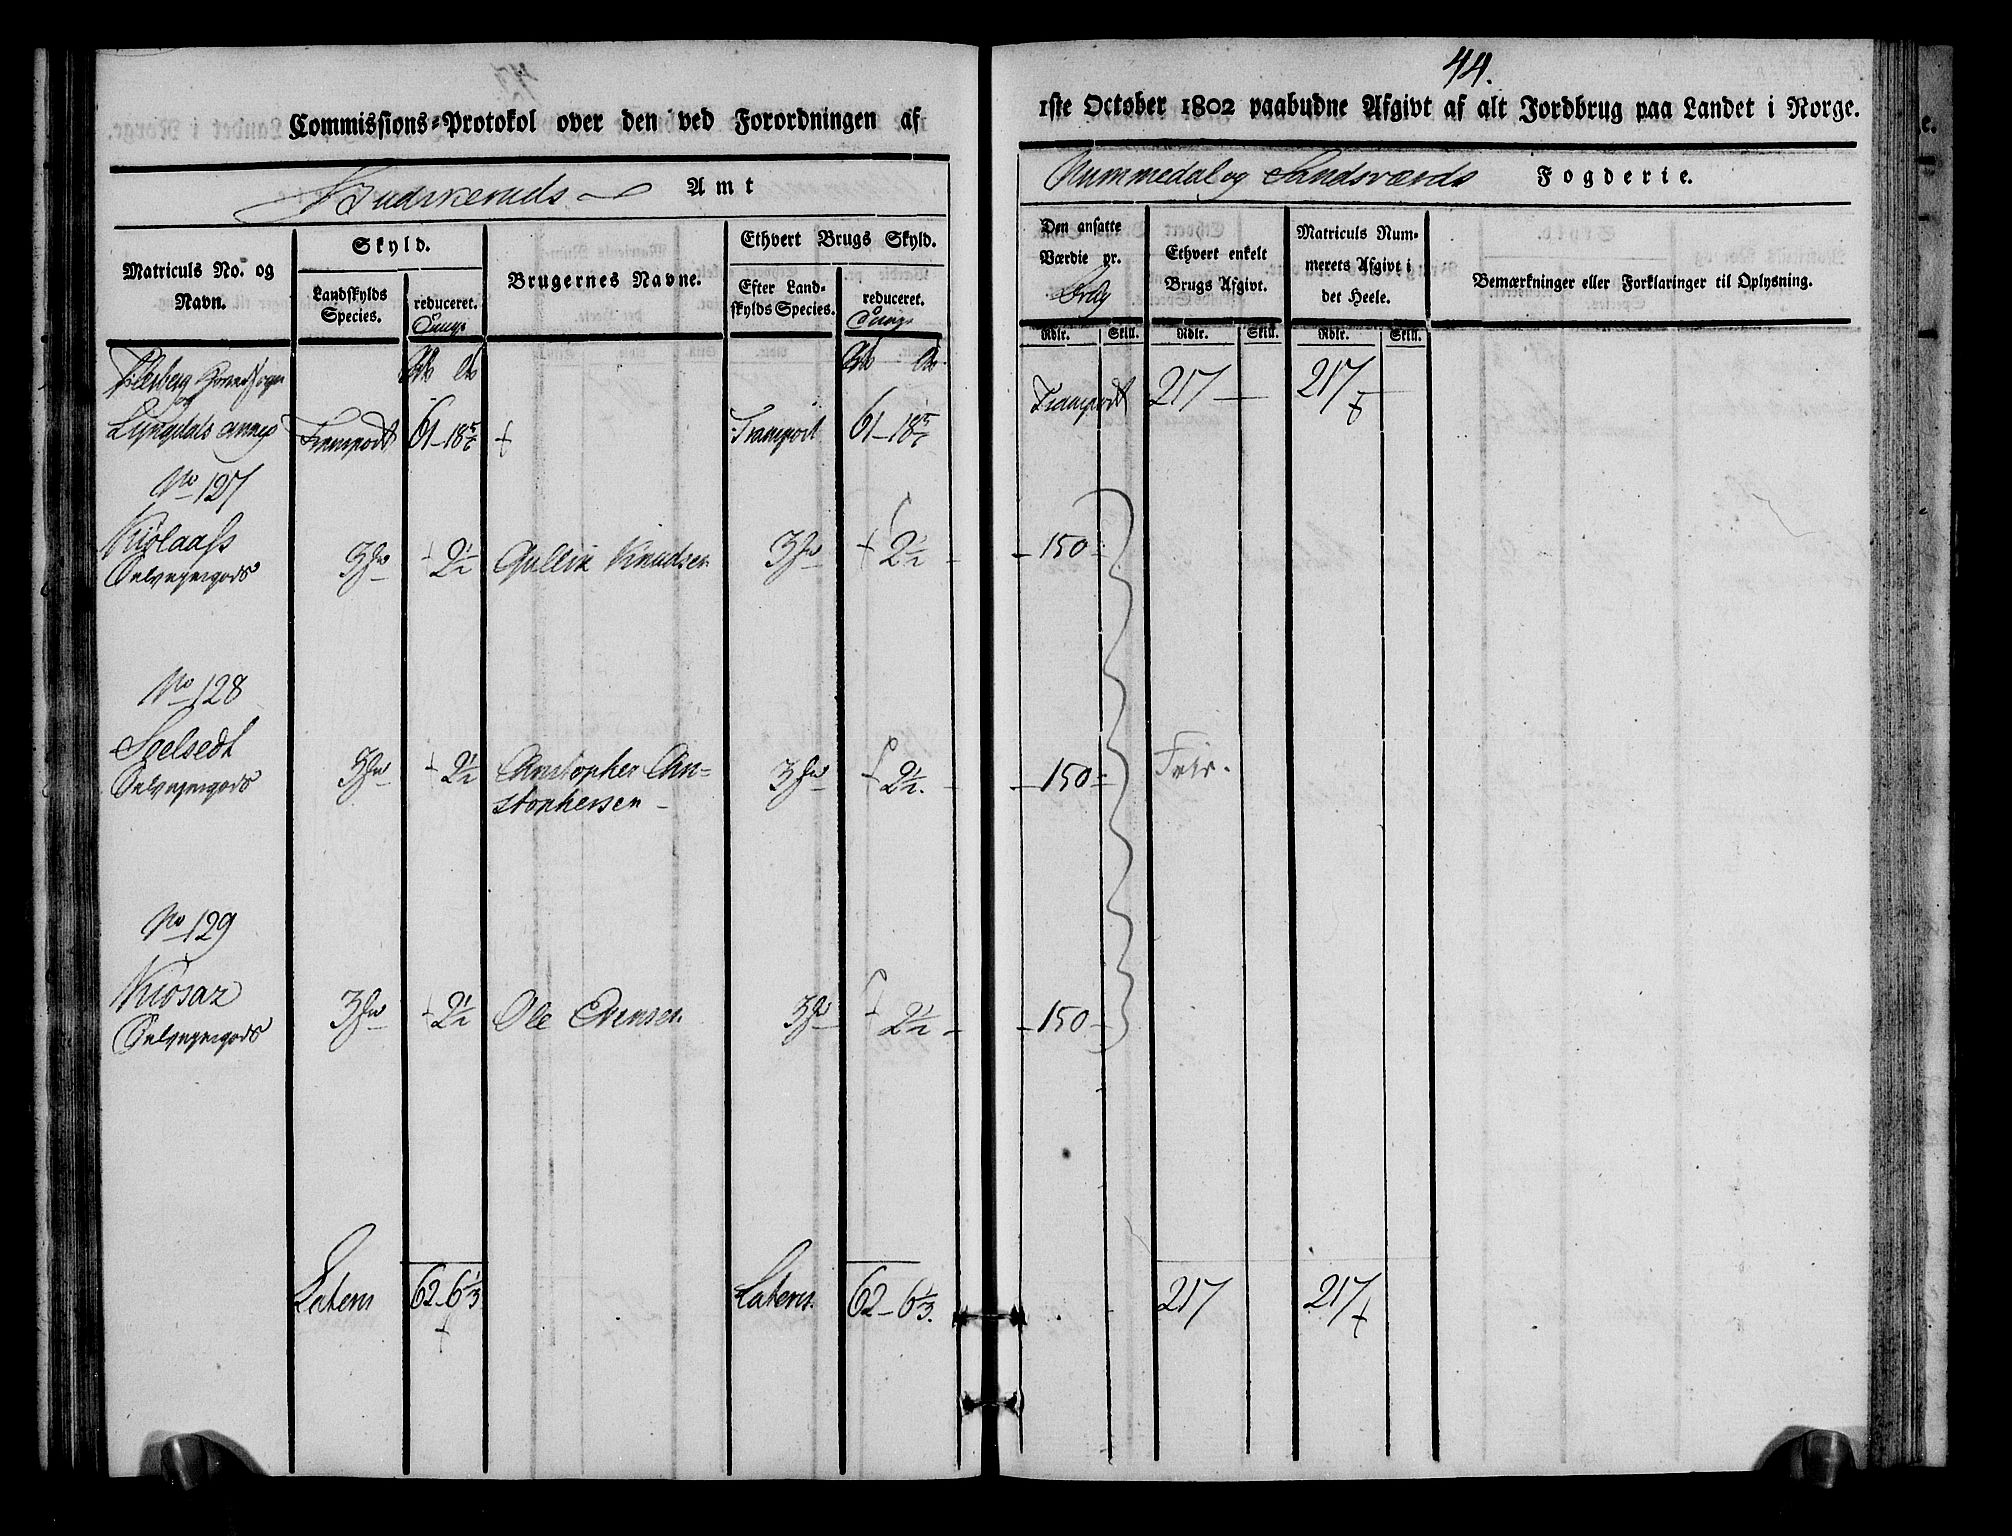 44.
Commissions-Protokol over den ved Forordningen af
1ste October 1802 paabudne Afgivt af alt Jordbrug paa Landet i Norge.
Buskeruds Amt
Nummedal og Sandsværds Fogderie.
Matriculs No. og
Navn.
Skyld.
Landskylds
Species.
reduceret.
Tunge
Brugernes Navne.
Ethvert Brugs Skyld.
Efter Land-
skylds Species.
reduceret.
Tunge
Den ansatte
Værdie pr.
Brug
Rdlr. Skill.
Ethvert enkelt
Brugs Afgivt.
Rdlr. Skill.
Matriculs Num-
merets Afgivt i
det Heele.
Rdlr. Skill.
Bemærkninger eller Forklaringer til Oplysning.
Flesberg Hovedsogn
og
Lyngdals Annex Transport 61 - 18 5/6 Transport 61 - 18 5/6 Transport 217 - 217 -
No 127
Kiölaass
Selveyergods 3 - 2 1/2 Gullik Knudsen 3 - 2 1/2 - - 150 -
No 128
Selsedt
Selveyergods 3 - 2 1/2 Christopher Chri=
stophersen - 3 - 2 1/2. - - 150 - Frie.
No 129
Kiosaz
Selveyergods 3 - 2 1/2 Ole Evensen 3 - 2 1/2 - - 150 -
Lateris 62 - 6 1/3 Lateris. 62 - 6 1/3. 217 217